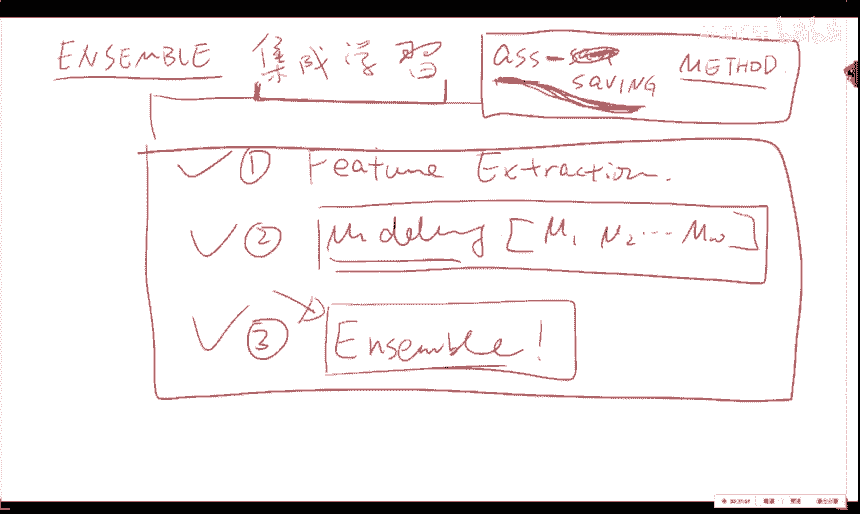 ENSEMBLE 集成学習 ass- SAVING METHOD
✓ ① Feature Extraction.
✓ ② Modeling [M₁ M₂ ... M₁₀]
✓ ③ Ensemble!